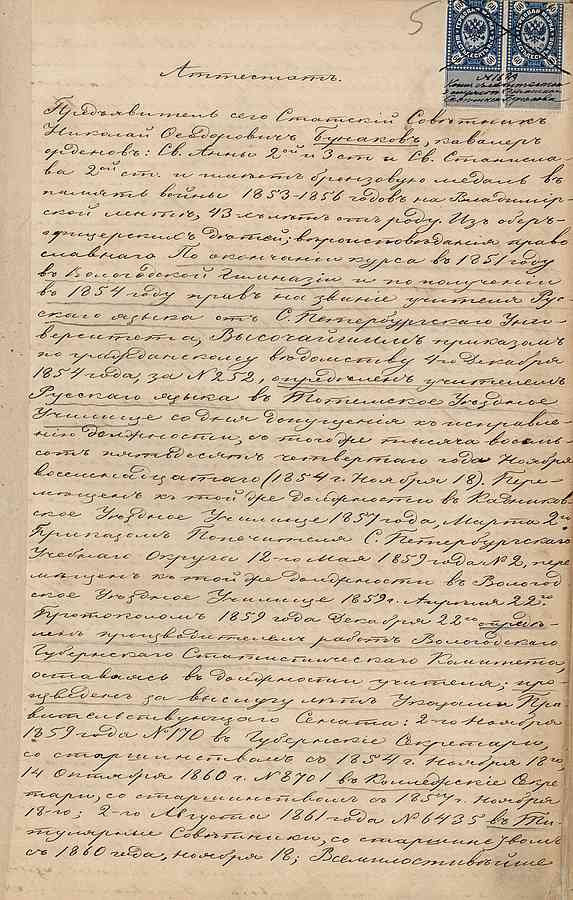 5
60 60
№1649
Аттестатъ.
Предъявитель сего Статскій Совѣтникъ
Николай Ѳеодоровичъ Бунаковъ, кавалеръ
орденовъ: Св. Анны 2ой и 3 ст и Св. Станисла-
ва 2ой ст. и имѣетъ бронзовую медаль въ
память войны 1853-1856 годовъ на Владимір-
ской лентѣ, 43 лѣтъ отъ роду. Изъ оберъ-
офицерскихъ дѣтей; вѣроисповѣданія право
славнаго. По окончаніи курса въ 1851 году
въ Вологодской Гимназіи и по полученіи
въ 1854 году правъ на званіе учителя Рус-
скаго языка отъ С. Петербургскаго Уни-
верситета, Высочайшимъ приказомъ
по гражданскому вѣдомству 4го Декабря
1854 года, за №252, опредѣленъ учителемъ
Русскаго языка въ Тотемское Уѣздное
Училище со дня допущенія къ исправле-
нію должности, съ того же тысяча восемь-
сотъ пятьдесятъ четвертаго года Ноября
восемнадцатаго (1854 г. Ноября 18). Пере-
мѣщенъ къ той же должности въ Кадников-
ское Уѣздное Училище 1857 года, Марта 2го
Приказомъ Попечителя С. Петербургскаго
Учебнаго Округа 12-го Мая 1859 года №2, пере
мѣщенъ къ той же должности въ Вологод
ское Уѣздное Училище 1859 г. Апрѣля 22го.
Протоколомъ 1859 года Декабря 22го опредѣ-
ленъ производителемъ работъ Вологодскаго
Губернскаго Статистическаго Комитета,
оставаясь въ должности учителя; про-
изведенъ за выслугу лѣтъ Указами Пра-
вительствующаго Сената: 2-го Ноября
1859 года №170 въ Губернскіе Секретари,
со старшинствомъ съ 1854 г. Ноября 18го,
14 Октября 1860 г. №8701 въ Коллежскіе Секре
тари, со старшинствомъ съ 1857 г. Ноября
18-го; 2-го Августа 1861 года №6435 въ Ти-
тулярные Совѣтники, со старшинствомъ
съ 1860 года, Ноября 18; Всемилостивѣйше